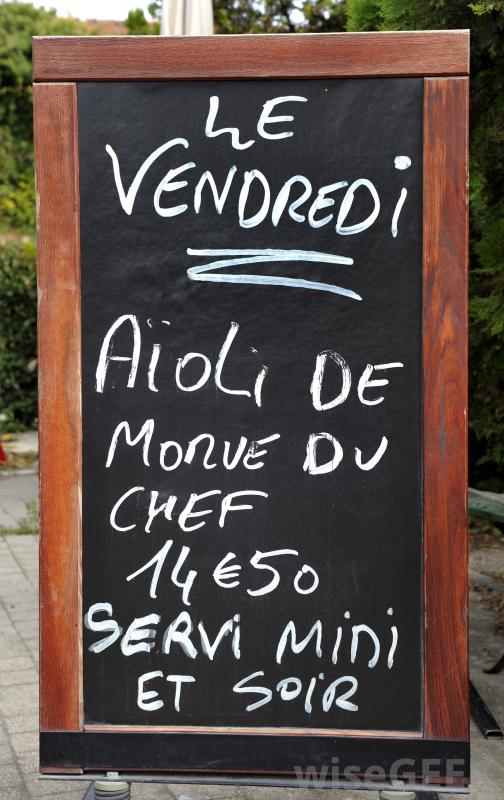 LE
VENDREDi
AÏOLi DE
MORUE DU
CHEF
14€50
SERVi MiDi
ET SOiR
wiseGEEK